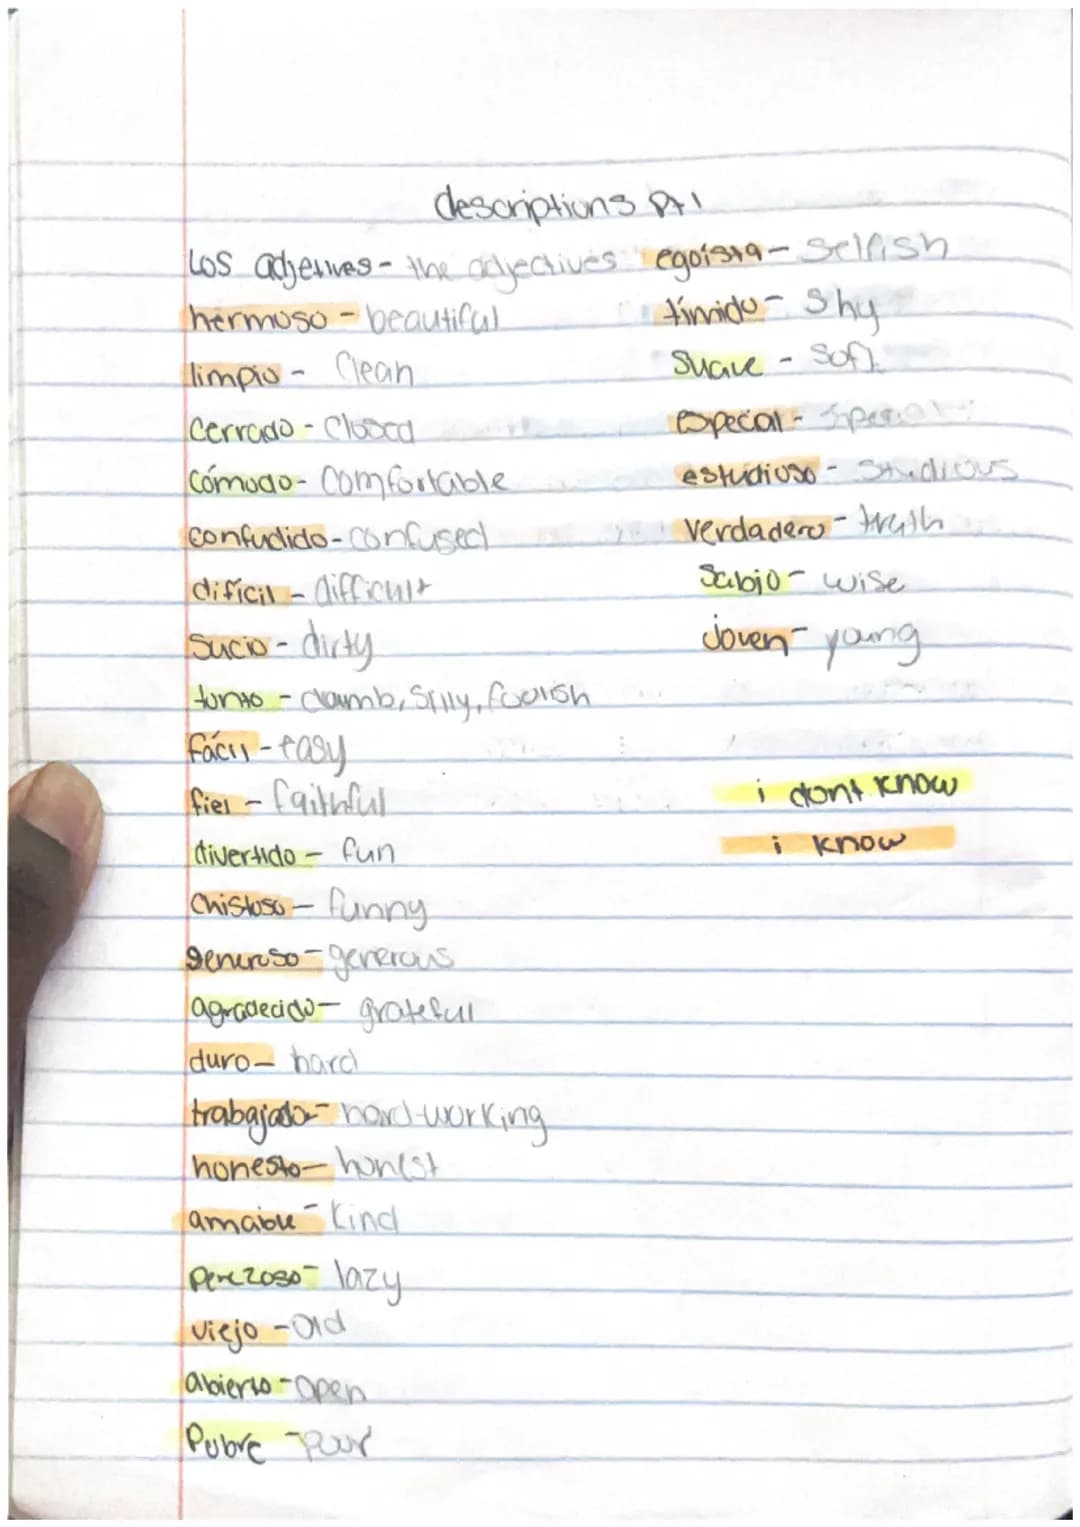 descriptions pt 1
Los adjetives - the adjectives
hermoso - beautiful
limpio - Clean
Cerrado - Closed
Cómodo - Comfortable
confudido - confused
difícil - difficult
Sucio - dirty
tonto - dumb, silly, foolish
Fácil - easy
fiel - faithful
divertido - fun
Chistoso - funny
generoso - generous
agradecido - grateful
duro - hard
trabajado - hard-working
honesto - honest
amable - Kind
perezoso - lazy
viejo - Old
abierto - Open
Pobre - poor
egoísta - Selfish
tímido - Shy
Suave - Soft
especial - Special
estudioso - Studious
Verdadero - truth
Sabio - wise
Joven - young
i dont know
i know